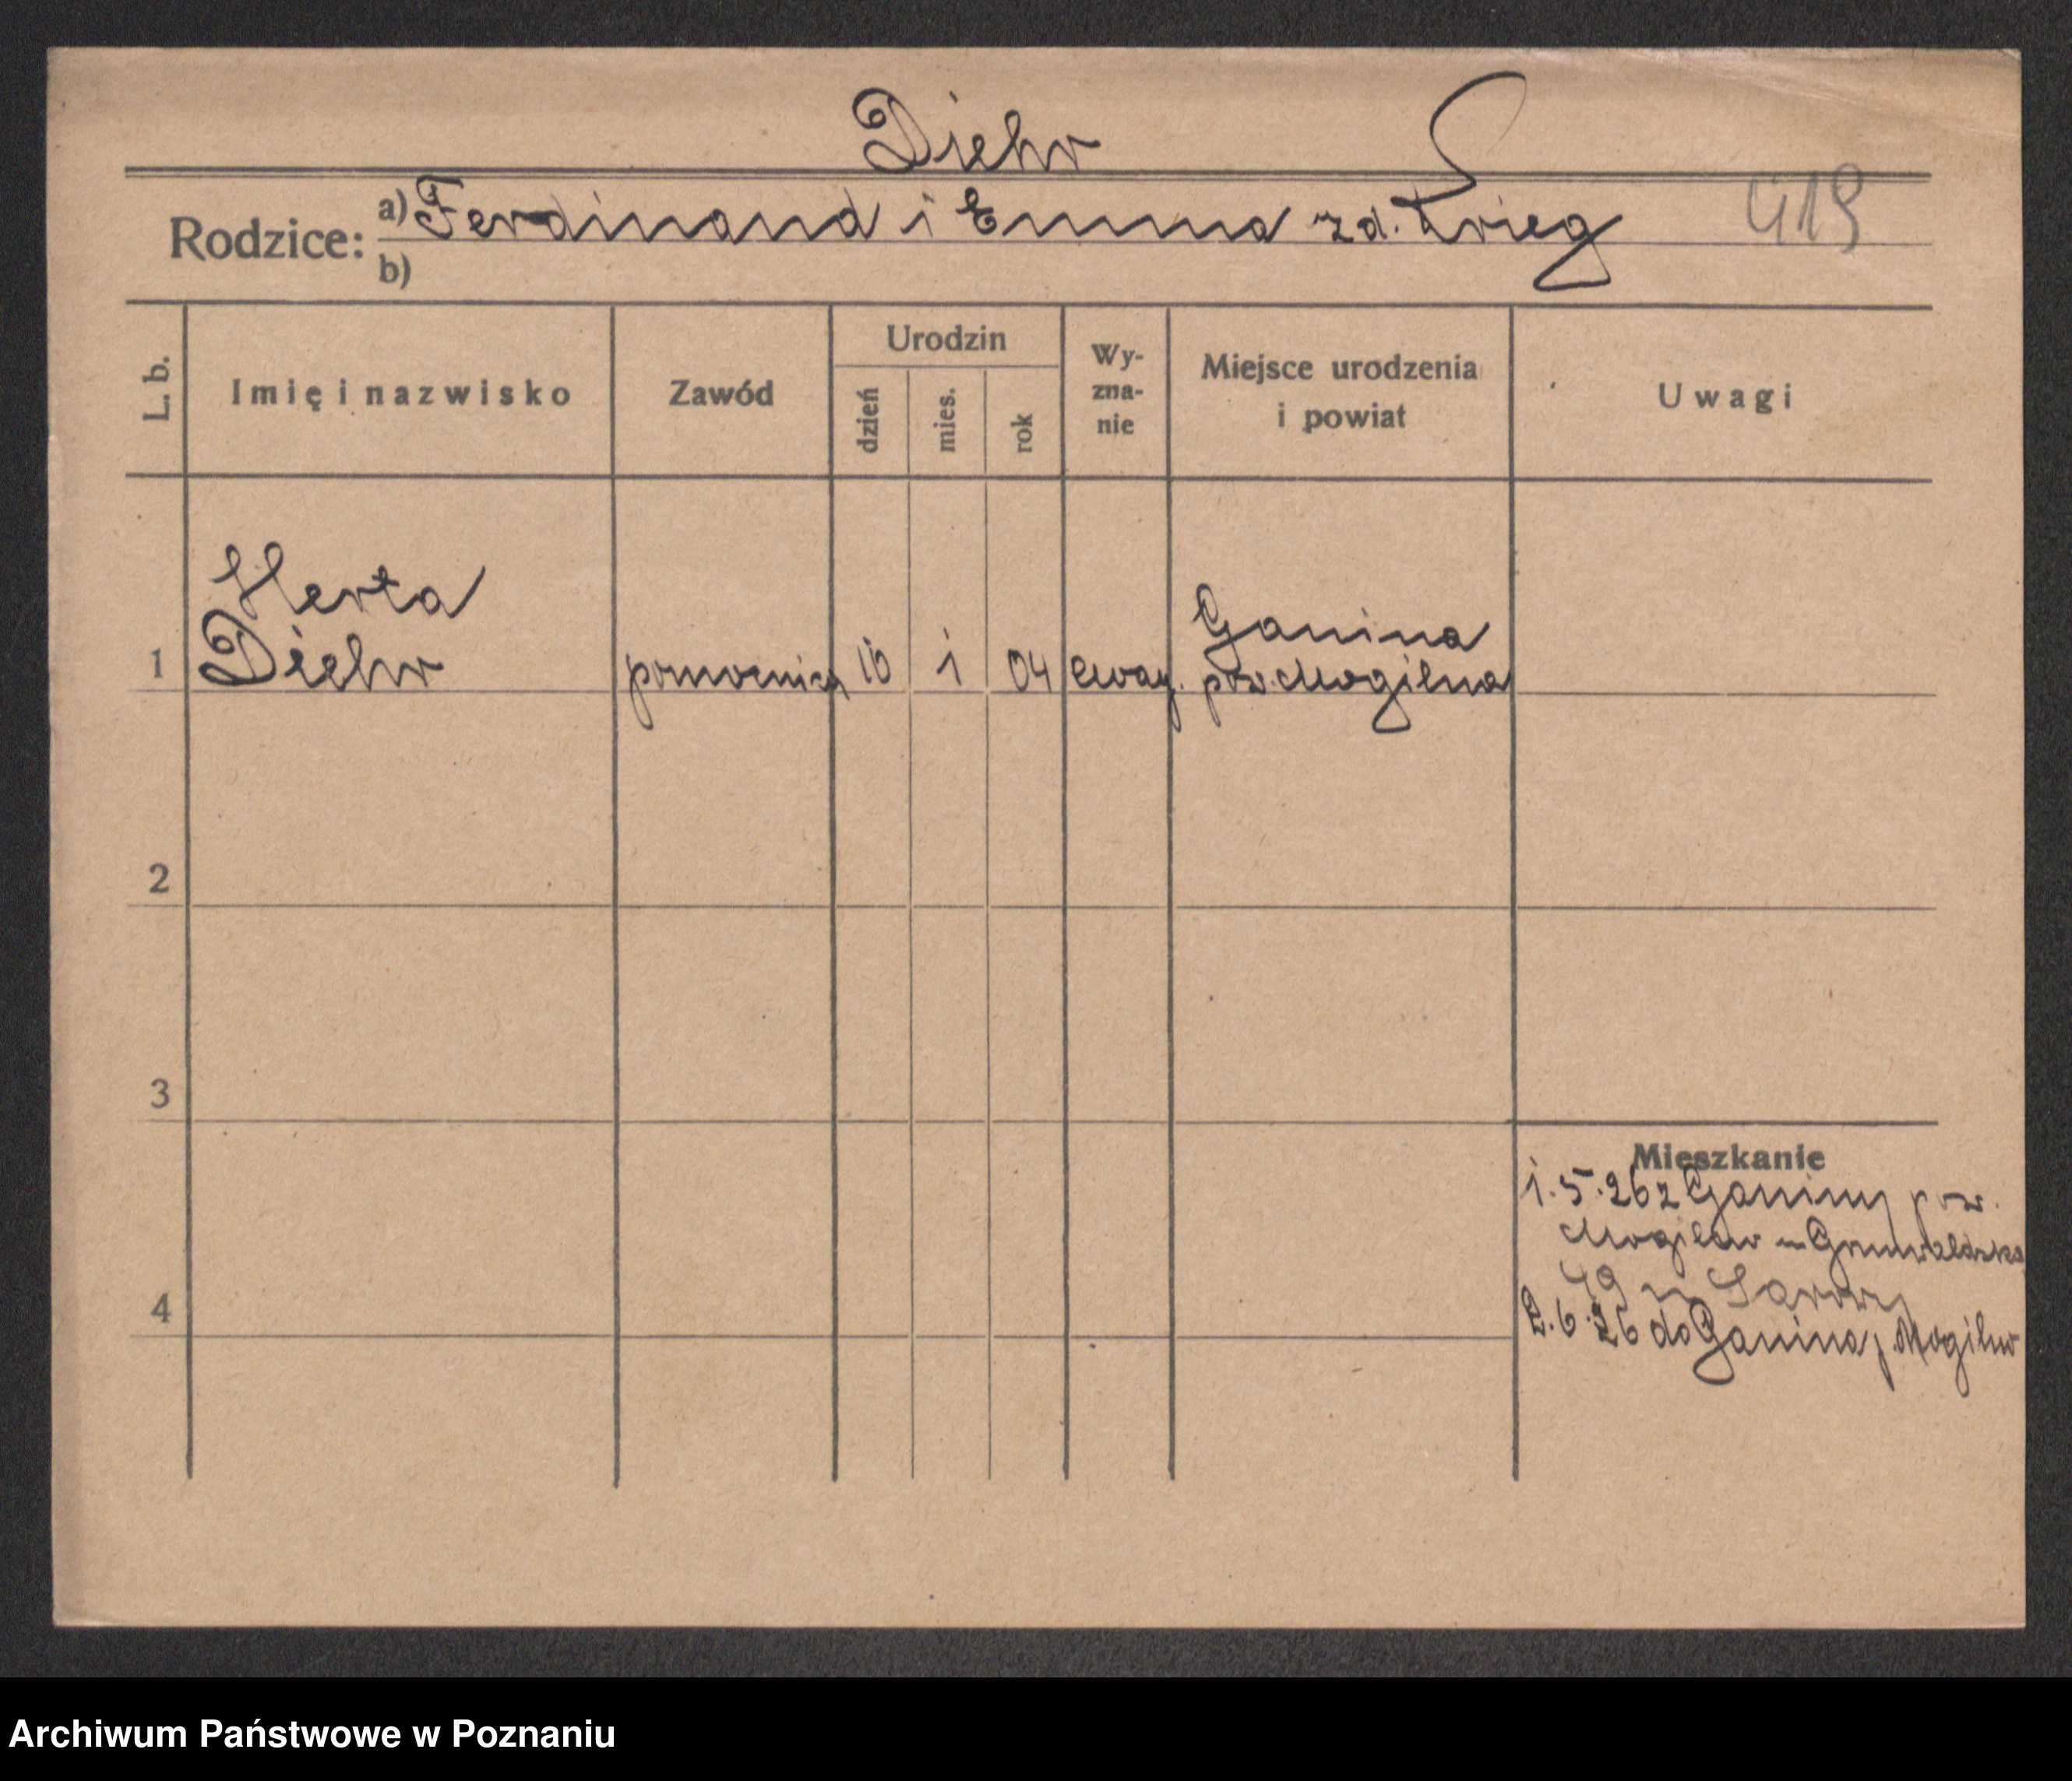 Diehr
Rodzice: a) Ferdinand i Emma zd. Krieg 419
b)
L. b. Imię i nazwisko Zawód Urodzin dzień mies. rok Wy-zna-nie Miejsce urodzenia i powiat Uwagi
Herta
Ganina
1 Diehr pomocnica 10 1 04 ewag. pow. Mogilna
2
3
Mieszkanie
1.5.26 z Ganiny pow.
Mogilno - Grunwaldzka
49 u
4
2.6.26 do Ganina p. Mogilno
Archiwum Państwowe w Poznaniu